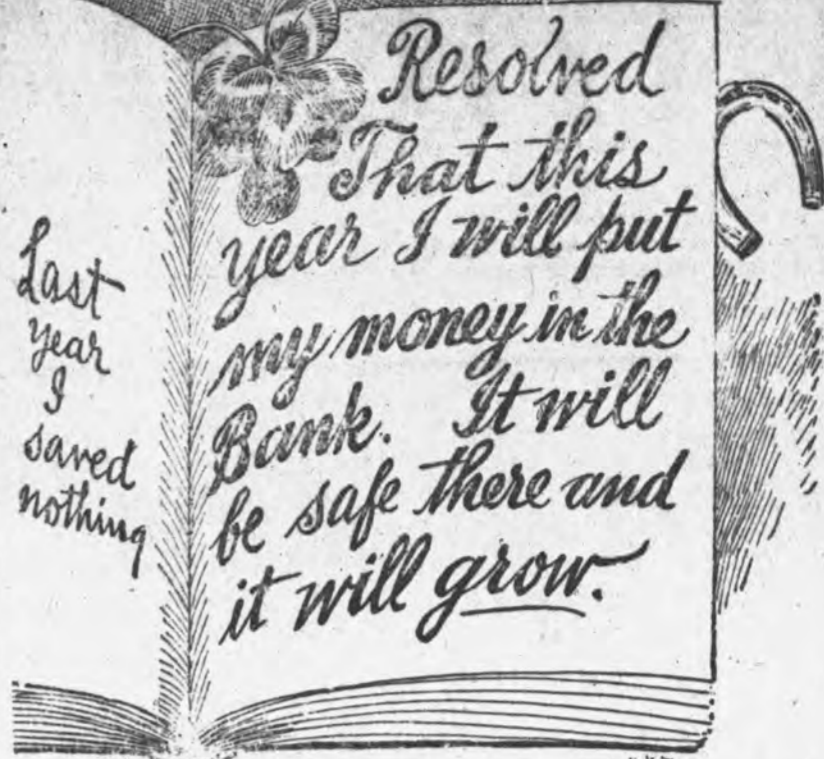 Last
year
I
saved
nothing
Resolved
That this
year I will put
my money in the
Bank. It will
be safe there and
it will grow.